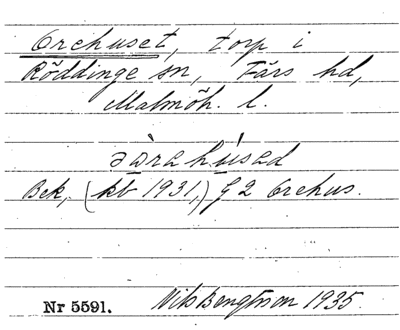 Orehuset, torp i
Röddinge sn, Färs hd,
Malmöh. l.
Bek, (kb 1931,) G 2 Orehus.
Nr 5591. Nils Bengtsson 1935.